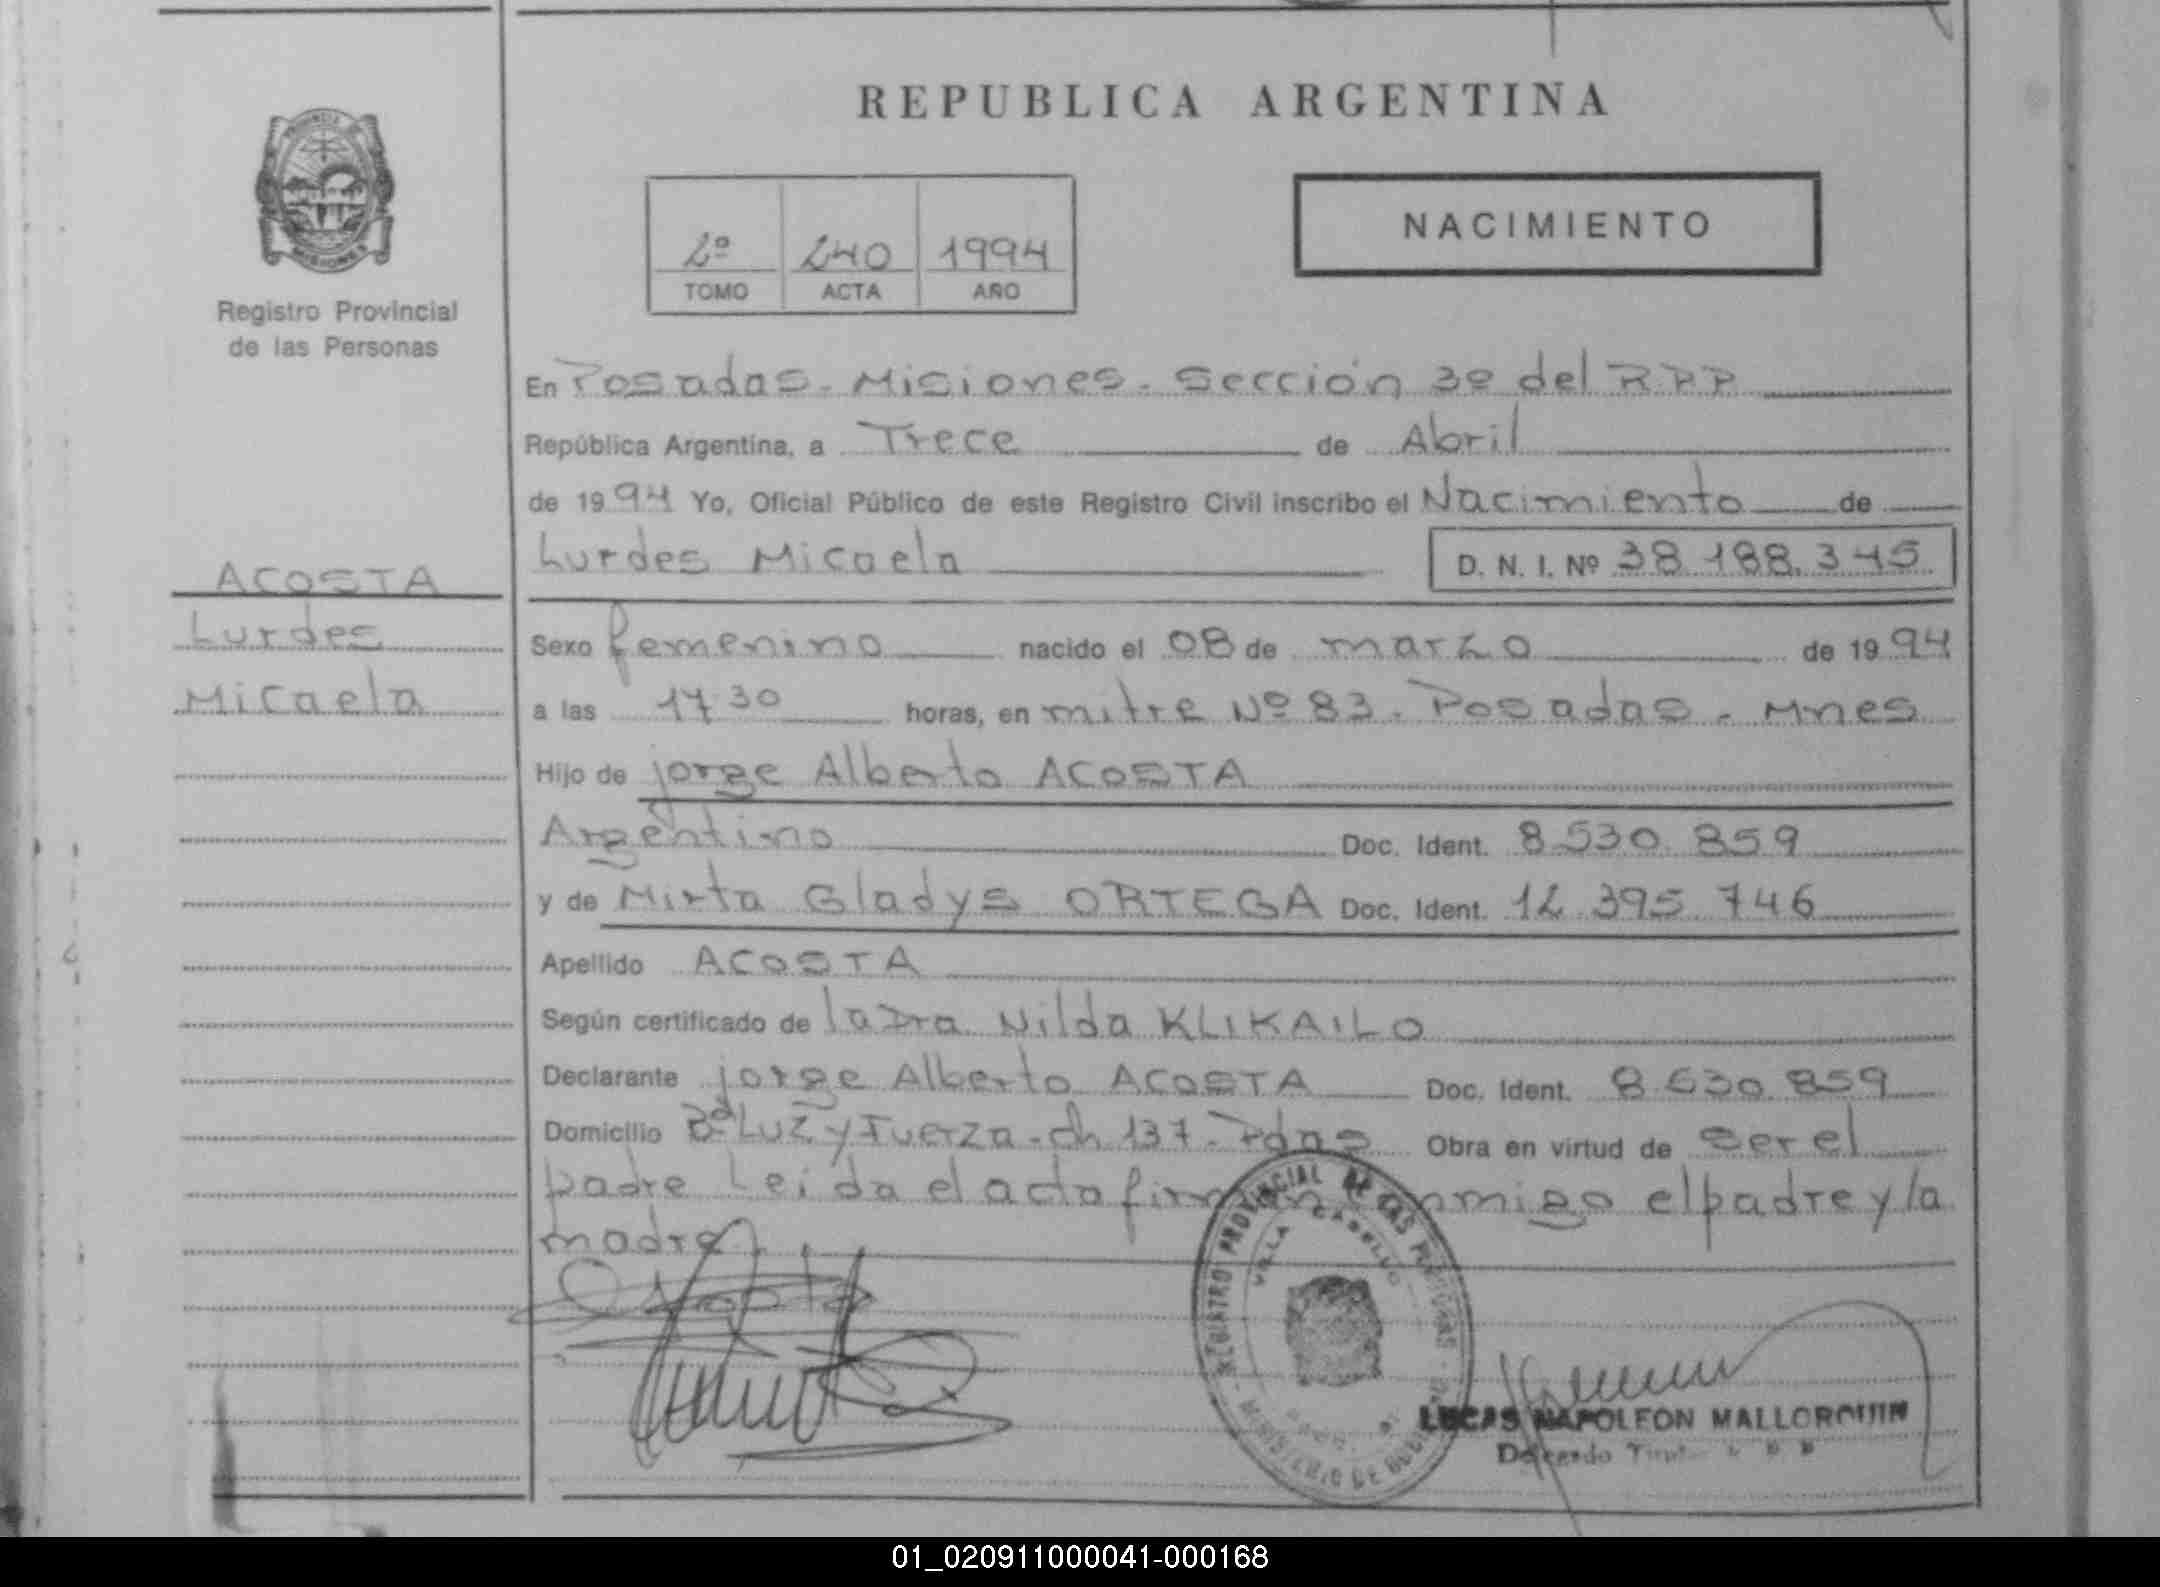 REPUBLICA ARGENTINA
NACIMIENTO
2º 240 1994
TOMO ACTA AÑO
PROVINCIA DE
MISIONES
Registro Provincial
de las Personas
ACOSTA
Lurdes
Micaela
En Posadas - Misiones - Sección 3º del RPP
República Argentina, a Trece de Abril
de 1994 Yo, Oficial Público de este Registro Civil inscribo el Nacimiento de
Lurdes Micaela D. N. I. Nº 38 188.345
Sexo femenino nacido el 08 de marzo de 1994
a las 17 30 horas, en mitre Nº 83 - Posadas - Mnes
Hijo de jorge Alberto ACOSTA
Argentino Doc. Ident. 8 530 859
y de Mirta Gladys ORTEGA Doc. Ident. 12 395 746
Apellido ACOSTA
Según certificado de la Dra Nilda KLIKAILO
Declarante jorge Alberto ACOSTA Doc. Ident. 8 530 859
Domicilio Bº Luz y Fuerza - ch 137 - Pdas Obra en virtud de ser el
padre Leida el acta firman conmigo el padre y la
madre
REGISTRO PROVINCIAL DE LAS PERSONAS
VILLA CABELLO
LUCAS NAPOLEON MALLORQUIN
01_020911000041-000168